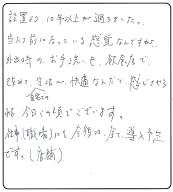 設置より、10年以上が過ぎました。
当たり前になっている感覚なんですが、
外出時のお手洗いや、飲食店で
改めて、生活が快適なんだと感じさせる
自宅での
今日この頃でございます。
仕事(職場)にも、今後は、全て、導入予定
です。(店舗)